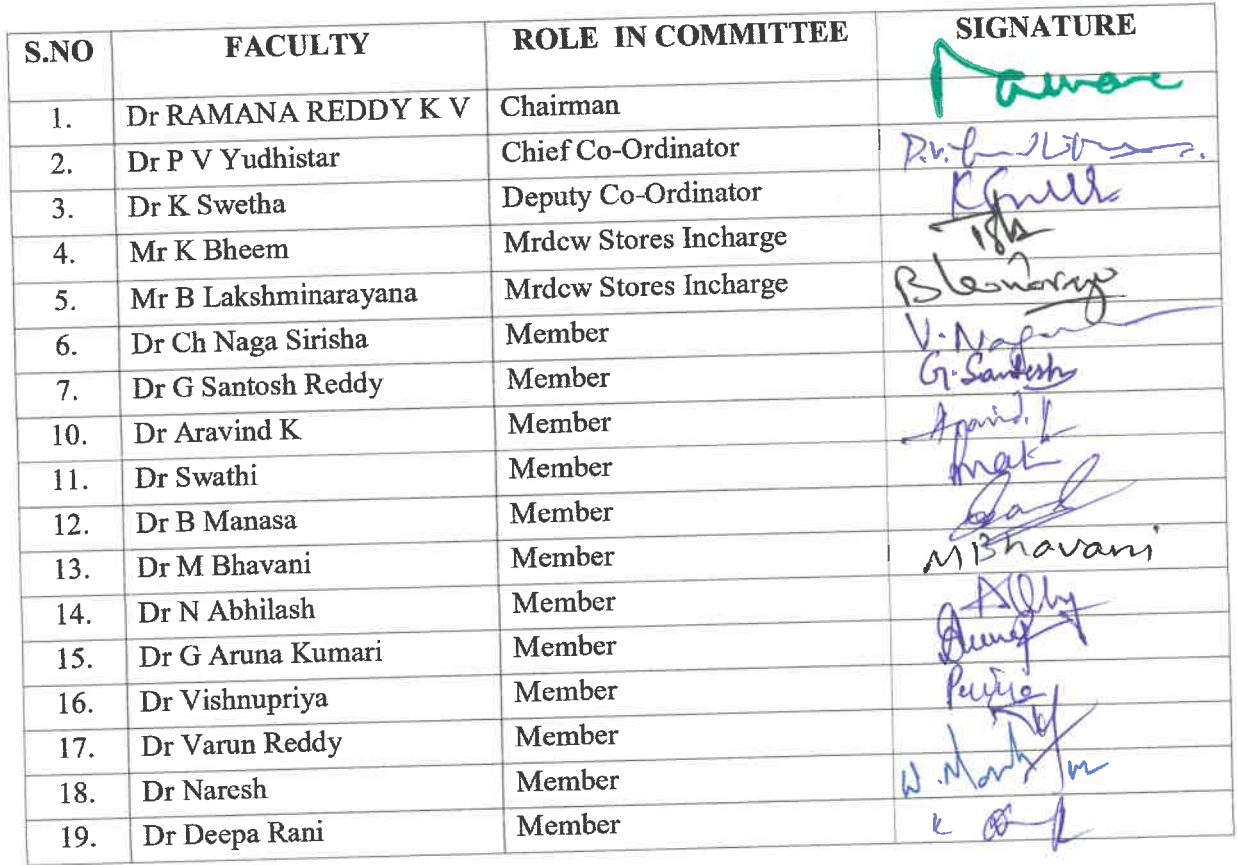 S.NO FACULTY ROLE IN COMMITTEE SIGNATURE
1. Dr RAMANA REDDY K V Chairman
2. Dr P V Yudhistar Chief Co-Ordinator
3. Dr K Swetha Deputy Co-Ordinator
4. Mr K Bheem Mrdcw Stores Incharge
5. Mr B Lakshminarayana Mrdcw Stores Incharge
6. Dr Ch Naga Sirisha Member
7. Dr G Santosh Reddy Member G. Santosh
10. Dr Aravind K Member Aravind. K
11. Dr Swathi Member
12. Dr B Manasa Member
13. Dr M Bhavani Member M Bhavani
14. Dr N Abhilash Member
15. Dr G Aruna Kumari Member
16. Dr Vishnupriya Member
17. Dr Varun Reddy Member
18. Dr Naresh Member
19. Dr Deepa Rani Member